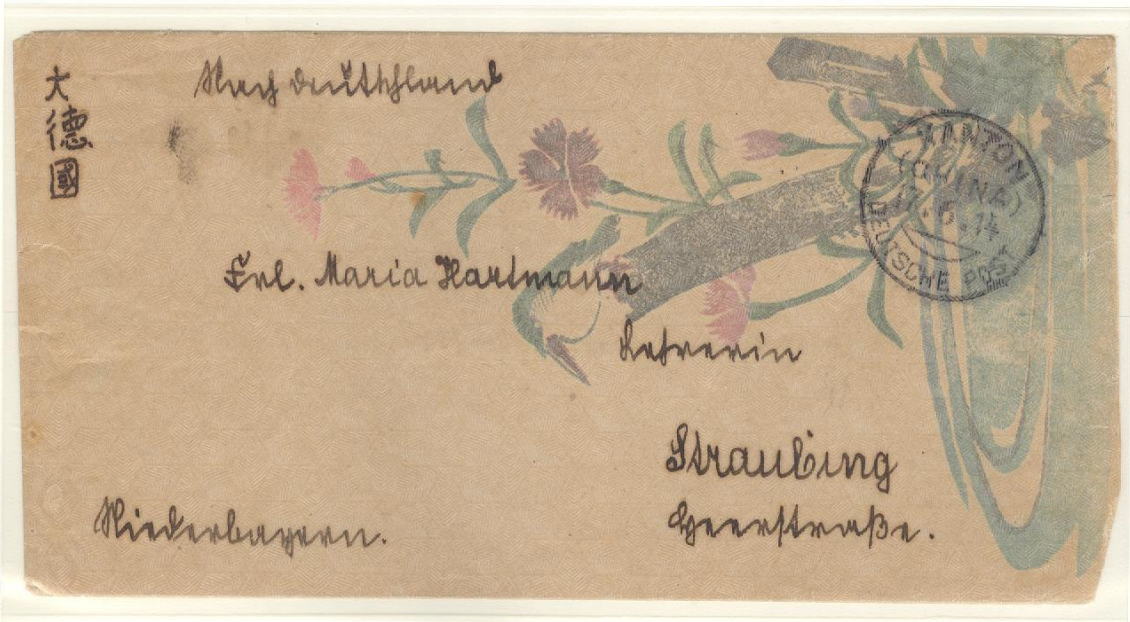 大德國
Nach Deutschland
KANTON
(CHINA)
17.5.14
DEUTSCHE POST
Frl. Maria Hartmann
Lehrerin
Straubing
Heerstraße.
Niederbayern.